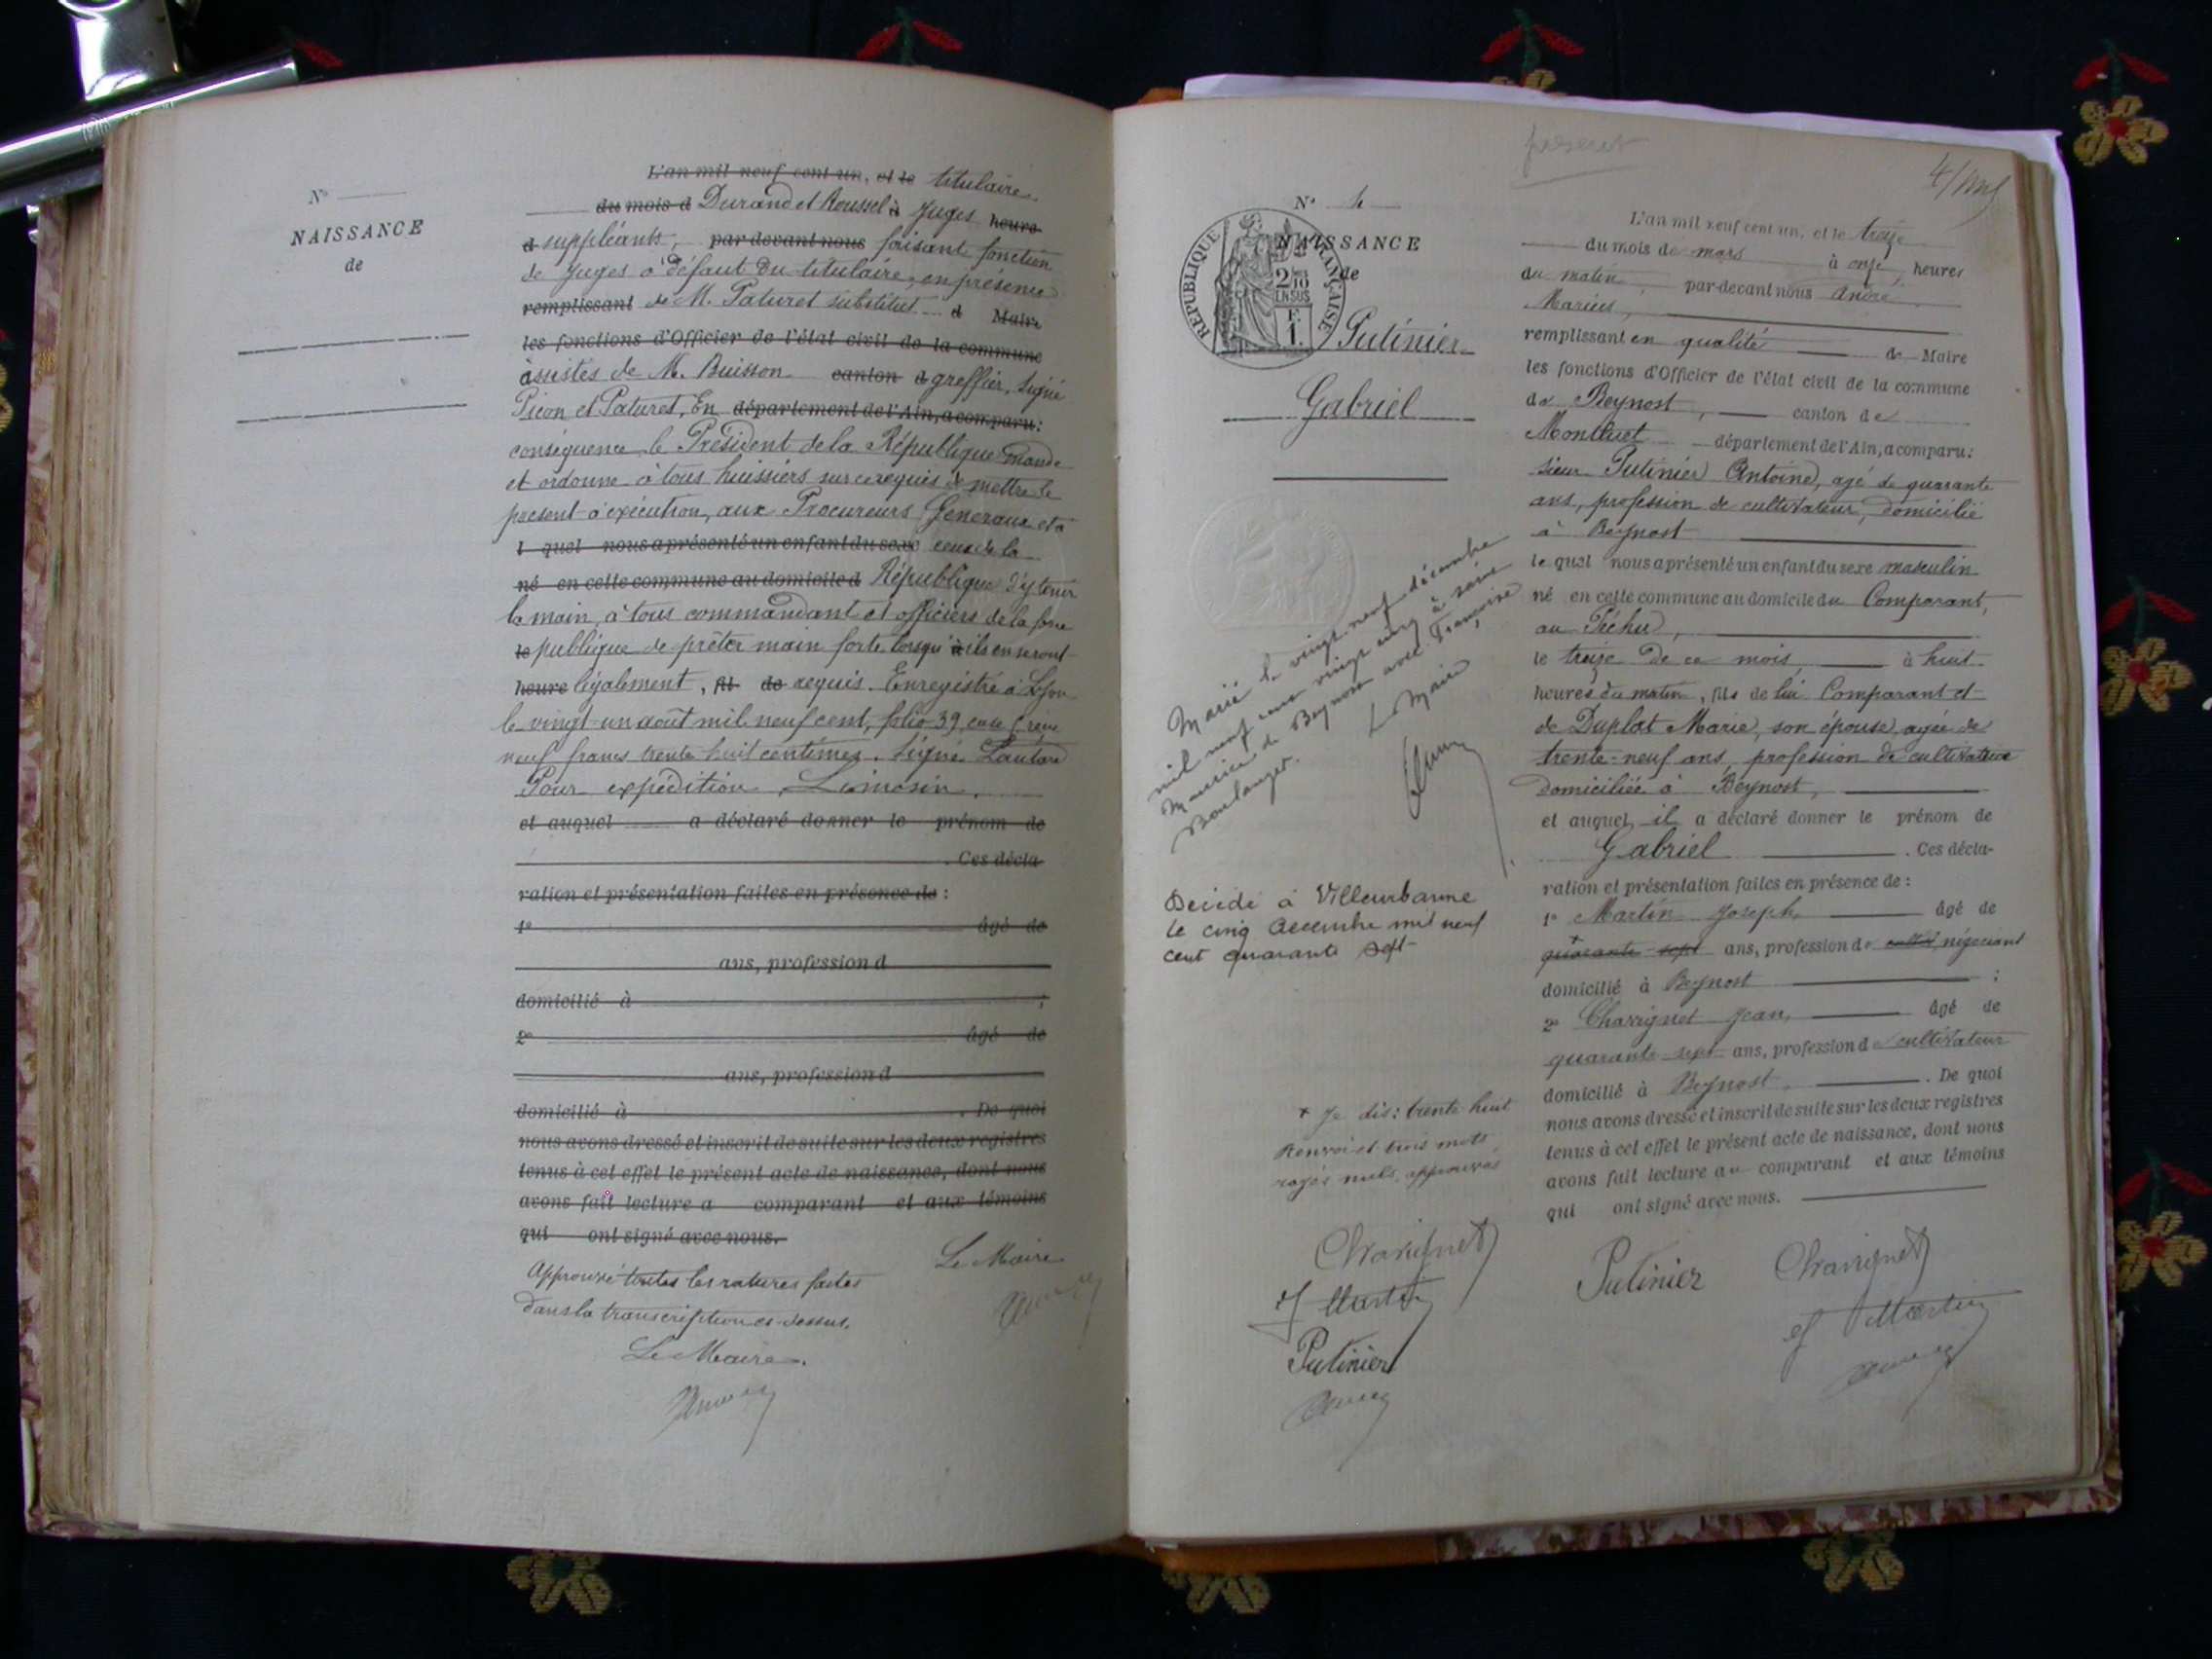 N°
NAISSANCE
de
L'an mil neuf cent un, et le titulaire
du mois d Durand et Roussel à Juges heure
d suppléants, par devant nous faisant fonction
de Juges à défaut du titulaire, en présence
remplissant de M. Paturet substitut d Maire
les fonctions d'Officier de l'état civil de la commune
assistés de M. Buisson canton d greffier, Signé
Picon et Paturet, En département de l'Ain, a comparu :
conséquence le Président de la République mande
et ordonne à tous huissiers sur ce requis de mettre le
présent à exécution, aux Procureurs Généraux et à
l quel nous a présenté un enfant du sexe ceux de la
né en cette commune au domicile d République d'y tenir
la main, à tous commandant et officiers de la force
le publique de prêter main forte lorsqu'à ils en seront
heure légalement, fil de requis. Enregistré à Lyon
le vingt-un août mil neuf cent, folio 39, case Creçu
neuf francs trente huit centimes. Signé
Pour expédition, Limosin.
et auquel a déclaré donner le prénom de
. Ces décla-
ration et présentation faites en présence de :
1° âgé de
ans, profession d
domicilié à ;
2° âgé de
ans, profession d
domicilié à . De quoi
nous avons dressé et inscrit de suite sur les deux registres
tenus à cet effet le présent acte de naissance, dont nous
avons fait lecture a comparant et aux témoins
qui ont signé avec nous.
Le Maire
Approuvé toutes les ratures faites
dans la transcription ci-dessus.
Le Maire.
présent
4/
N° 4
NAISSANCE
de
RÉPUBLIQUE FRANÇAISE
2/10 EN SUS
F. 1.
Putinier
Gabriel
Marié le vingt neuf décembre
mil neuf cent vingt cinq à saint
Maurice de Beynost avec Françoise
Boulanger.
Le Maire
Décédé à Villeurbanne
le cinq décembre mil neuf
cent quarante sept
+ Je dis : trente-huit
Renvoi et trois mots
rayés nuls, approuvés
Chavignet
J Martin
Putinier
L'an mil neuf cent un, et le treize
du mois de mars à onze heures
du matin, par-devant nous André
Marius,
remplissant en qualité de Maire
les fonctions d'Officier de l'état civil de la commune
de Beynost, canton de
Montluel département de l'Ain, a comparu :
sieur Putinier Antoine, agé de quarante
ans, profession de cultivateur, domicilié
à Beynost
le quel nous a présenté un enfant du sexe masculin
né en cette commune au domicile du Comparant,
au Péchu,
le treize de ce mois, à huit
heures du matin, fils de lui Comparant et
de Duplat Marie, son épouse, agée de
trente-neuf ans, profession de cultivatrice
domiciliée à Beynost,
et auquel il a déclaré donner le prénom de
Gabriel . Ces décla-
ration et présentation faites en présence de :
1° Martin Joseph, âgé de
+ quarante-sept ans, profession de négociant
domicilié à Beynost ;
2° Chavignet Jean, âgé de
quarante-sept ans, profession de cultivateur
domicilié à Beynost. De quoi
nous avons dressé et inscrit de suite sur les deux registres
tenus à cet effet le présent acte de naissance, dont nous
avons fait lecture au comparant et aux témoins
qui ont signé avec nous.
Putinier
Chavignet
J Martin